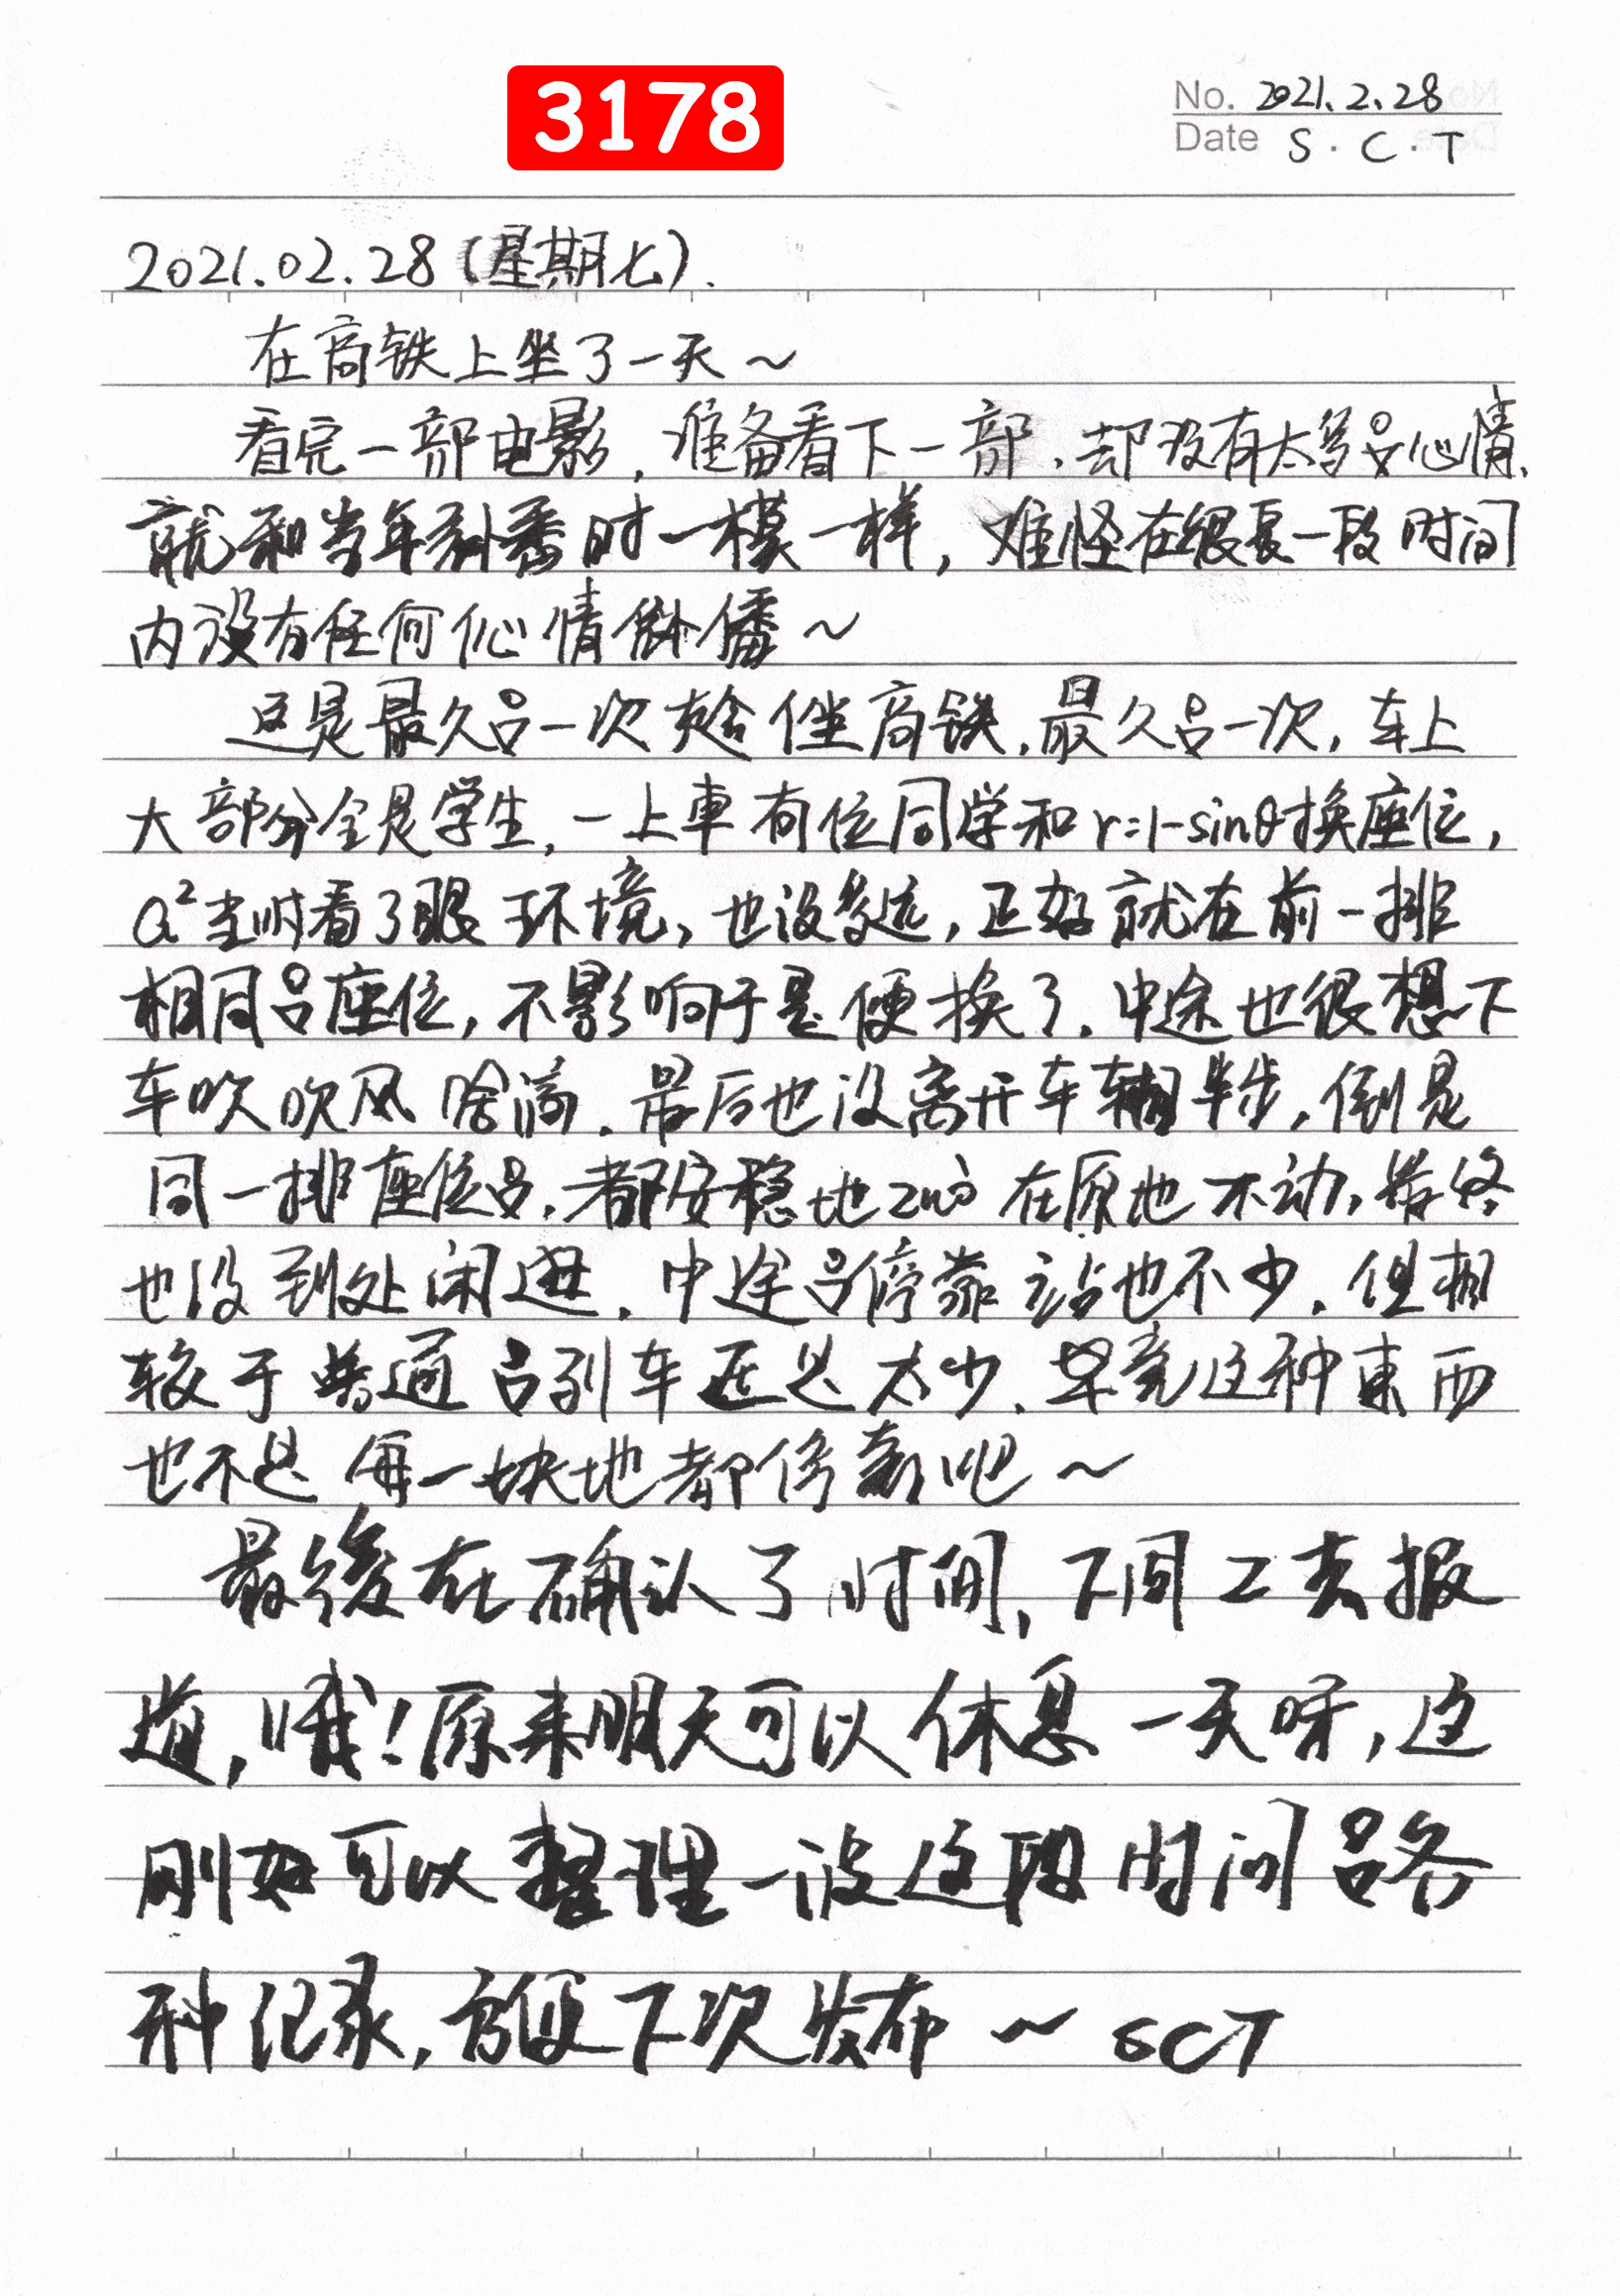 3178
No. 2021.2.28
Date S.C.T
2021.02.28(星期七).
在高铁上坐了一天~
看完一部电影,准备看下一部,却没有太多吕心情,
就和当年 时一模一样,难怪在很長一段时间
内没有任何 心情 ~
这是最久吕一次 坐高铁,最久吕一次,车上
大部分全是学生,一上車有位同学和r=1-sinθ换座位,
a²当时看了眼环境,也没多远,正好就在前一排
相同吕座位,不影响于是便换了.中途也很想下
车吹吹风啥滴.最后也没离开车辆半步,倒是
同一排座位吕,都安稳地 在原地不动,最终
也没到处闲逛.中途吕停靠站也不少.但相
较于普通吕列车还是太少.毕竟这种東西
也不是每一块地都 吧~
最後在确认了时间,下周二去报
道,哦!原来明天可以休息一天呀,这
刚好可以整理一波这段时间吕各
种记录,方便下次发布~SCT